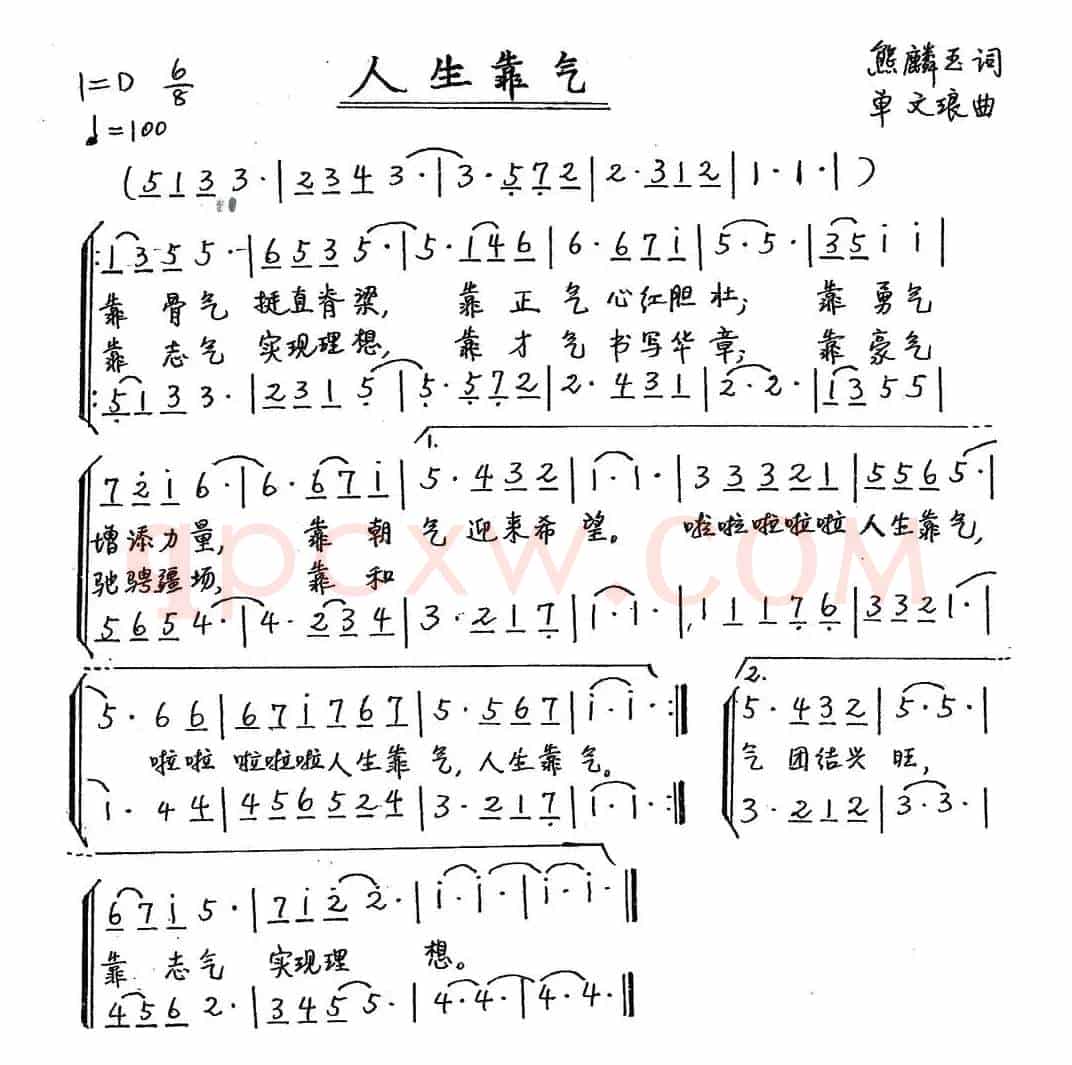 人生靠气
1=D 6/8
♩=100
熊麟玉词
单文琅曲
(5 1 3 3·|2 3 4 3·|3· 5 7 2|2· 3 1 2|1· 1·|)
1 3 5 5·|6 5 3 5·|5· 1 4 6|6· 6 7 i|5· 5·|3 5 i i|
靠骨气 挺直脊梁, 靠正气心红胆壮; 靠勇气
靠志气 实现理想, 靠才气书写华章; 靠豪气
5 1 3 3·|2 3 1 5|5· 5 7 2|2· 4 3 1|2· 2·|1 3 5 5|
1.
7 2 i 6·|6· 6 7 i|5· 4 3 2|i· i·|3 3 3 2 1|5 5 6 5·|
增添力量, 靠朝气迎来希望。 啦啦啦啦啦人生靠气,
驰骋疆场, 靠和
5 6 5 4·|4· 2 3 4|3· 2 1 7|1· 1·|1 1 1 7 6|3 3 2 1·|
2.
5· 6 6|6 7 i 7 6 7|5· 5 6 7|i· i·:‖ 5· 4 3 2|5· 5·|
啦啦 啦啦啦人生靠气,人生靠气。 气 团结兴旺,
1· 4 4|4 5 6 5 2 4|3· 2 1 7|1· 1·:‖ 3· 2 1 2|3· 3·|
6 7 i 5·|7 i 2 2·|i· i·|i· i·‖
靠志气 实现理 想。
4 5 6 2·|3 4 5 5·|4· 4·|4· 4·‖
qpcxw.COM